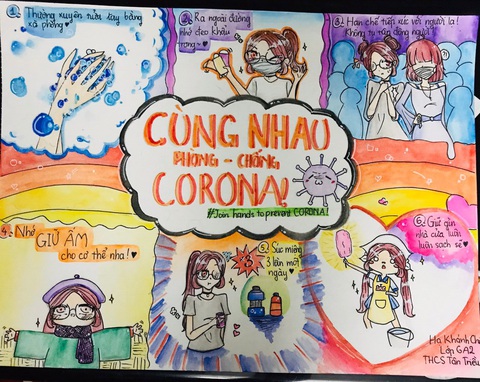 1. Thường xuyên rửa tay bằng
xà phòng ♥
2. Ra ngoài đường
nhớ đeo khẩu
trang ~ ♥
3. Hạn chế tiếp xúc với người lạ!
Không tụ tập đông người!
CÙNG NHAU
PHÒNG - CHỐNG
CORONA!
#Join hands to prevent CORONA!
4. Nhớ
GIỮ ẤM
cho cơ thể nha! ♥
5. Súc miệng
3 lần một
ngày ♥
6. Giữ gìn
nhà cửa luôn
luôn sạch sẽ ♥
Hà Khánh Chi
Lớp 6A2
THCS Tân Triều